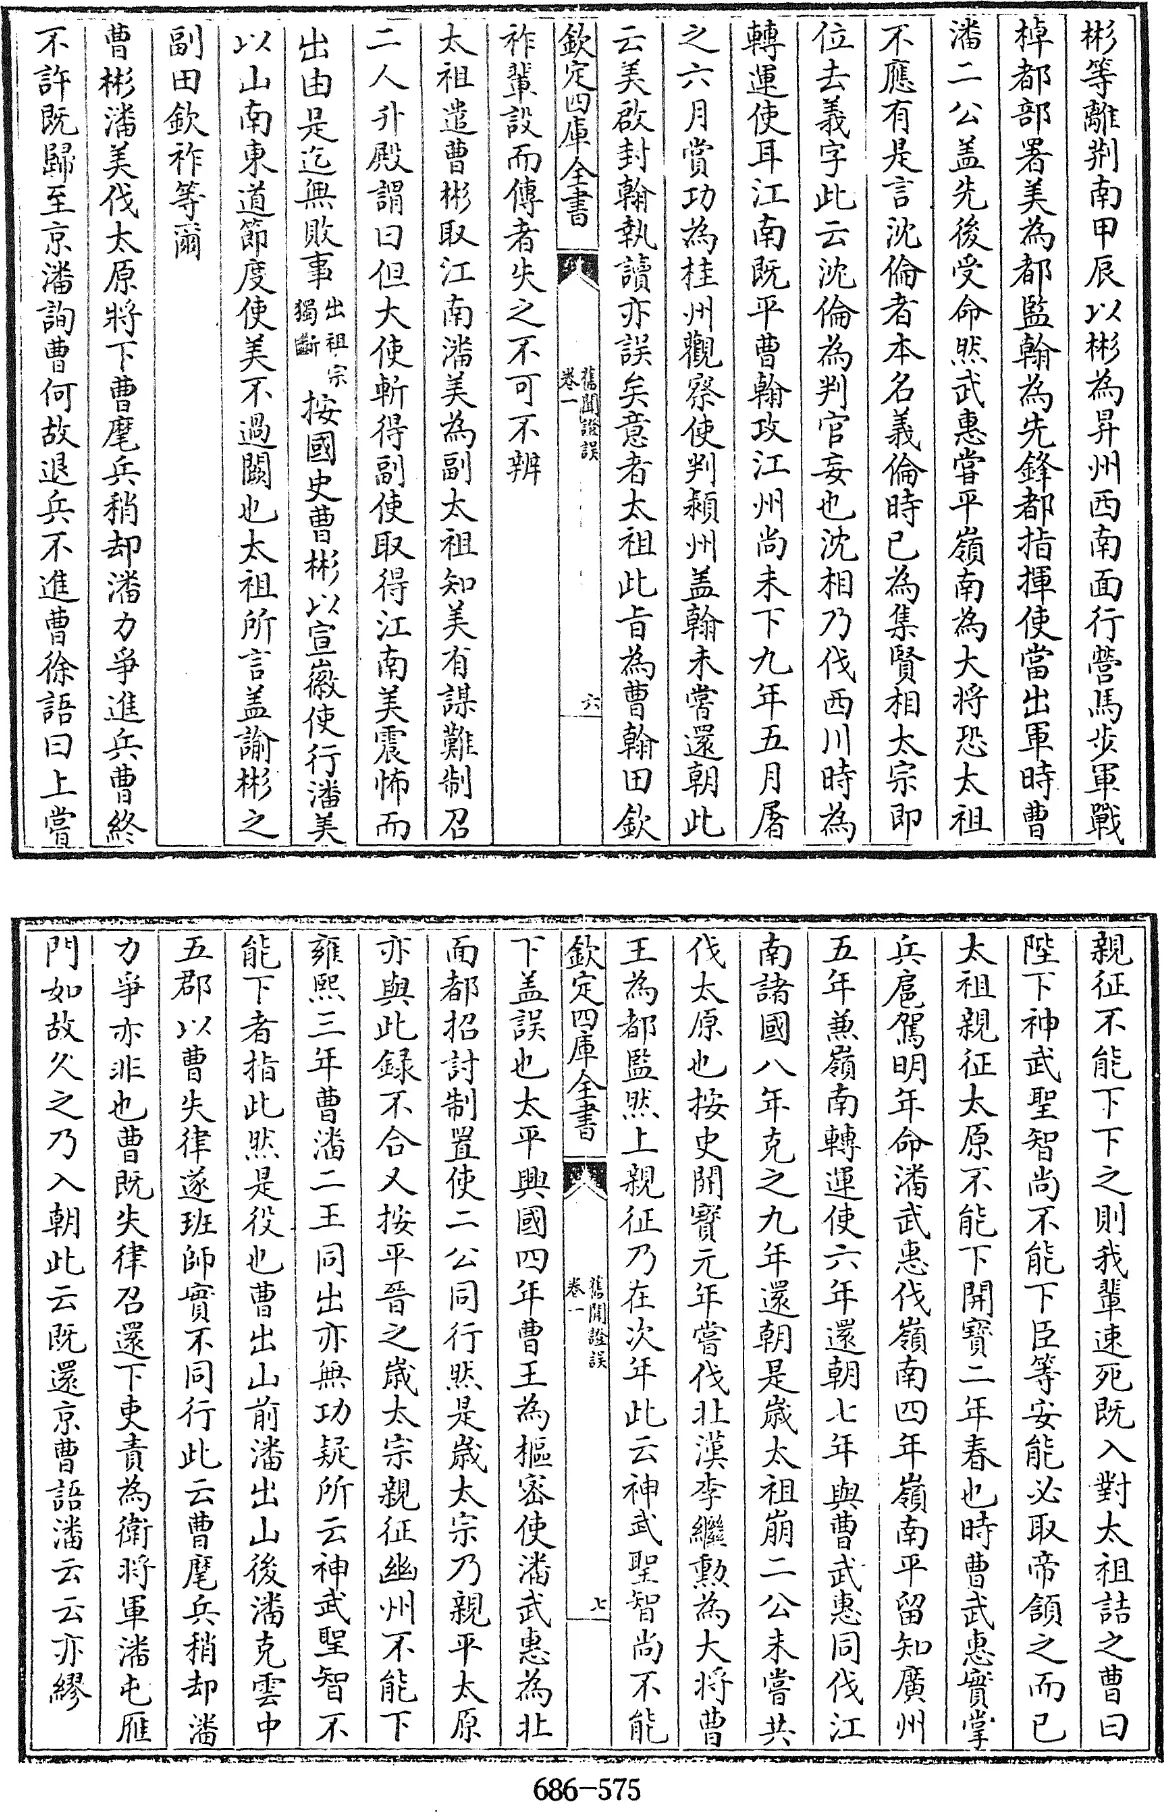 彬等離荆南甲辰以彬為昇州西南面行營馬步軍戰
棹都部署美為都監翰為先鋒都指揮使當出軍時曹
潘二公盖先後受命然武惠嘗平嶺南為大将恐太祖
不應有是言沈倫者本名義倫時已為集賢相太宗即
位去義字此云沈倫為判官妄也沈相乃伐西川時為
轉運使耳江南既平曹翰攻江州尚未下九年五月屠
之六月賞功為桂州觀察使判潁州盖翰未嘗還朝此
云美啟封翰執讀亦誤矣意者太祖此㫖為曹翰田欽
欽定四庫全書
舊聞證誤
卷一
六
祚輩設而傳者失之不可不辨
太祖遣曹彬取江南潘美為副太祖知美有謀難制召
二人升殿謂曰但大使斬得副使取得江南美震怖而
出由是迄無敗事出祖宗
獨斷
按國史曹彬以宣徽使行潘美
以山南東道節度使美不過闕也太祖所言盖諭彬之
副田欽祚等爾
曹彬潘美伐太原將下曹麾兵稍却潘力爭進兵曹終
不許既歸至京潘詢曹何故退兵不進曹徐語曰上嘗
親征不能下下之則我輩速死既入對太祖詰之曹曰
陛下神武聖智尚不能下臣等安能必取帝頷之而已
太祖親征太原不能下開寶二年春也時曹武惠實掌
兵扈駕明年命潘武惠伐嶺南四年嶺南平留知廣州
五年兼嶺南轉運使六年還朝七年與曹武惠同伐江
南諸國八年克之九年還朝是歳太祖崩二公未嘗共
伐太原也按史開寶元年嘗伐北漢李繼勲為大將曹
王為都監然上親征乃在次年此云神武聖智尚不能
欽定四庫全書
舊聞證誤
卷一
七
下盖誤也太平興國四年曹王為樞密使潘武惠為北
面都招討制置使二公同行然是歳太宗乃親平太原
亦與此録不合又按平晉之歳太宗親征幽州不能下
雍熙三年曹潘二王同出亦無功疑所云神武聖智不
能下者指此然是役也曹出山前潘出山後潘克雲中
五郡以曹失律遂班師實不同行此云曹麾兵稍却潘
力爭亦非也曹既失律召還下吏責為衛將軍潘屯雁
門如故久之乃入朝此云既還京曹語潘云云亦繆
686-575